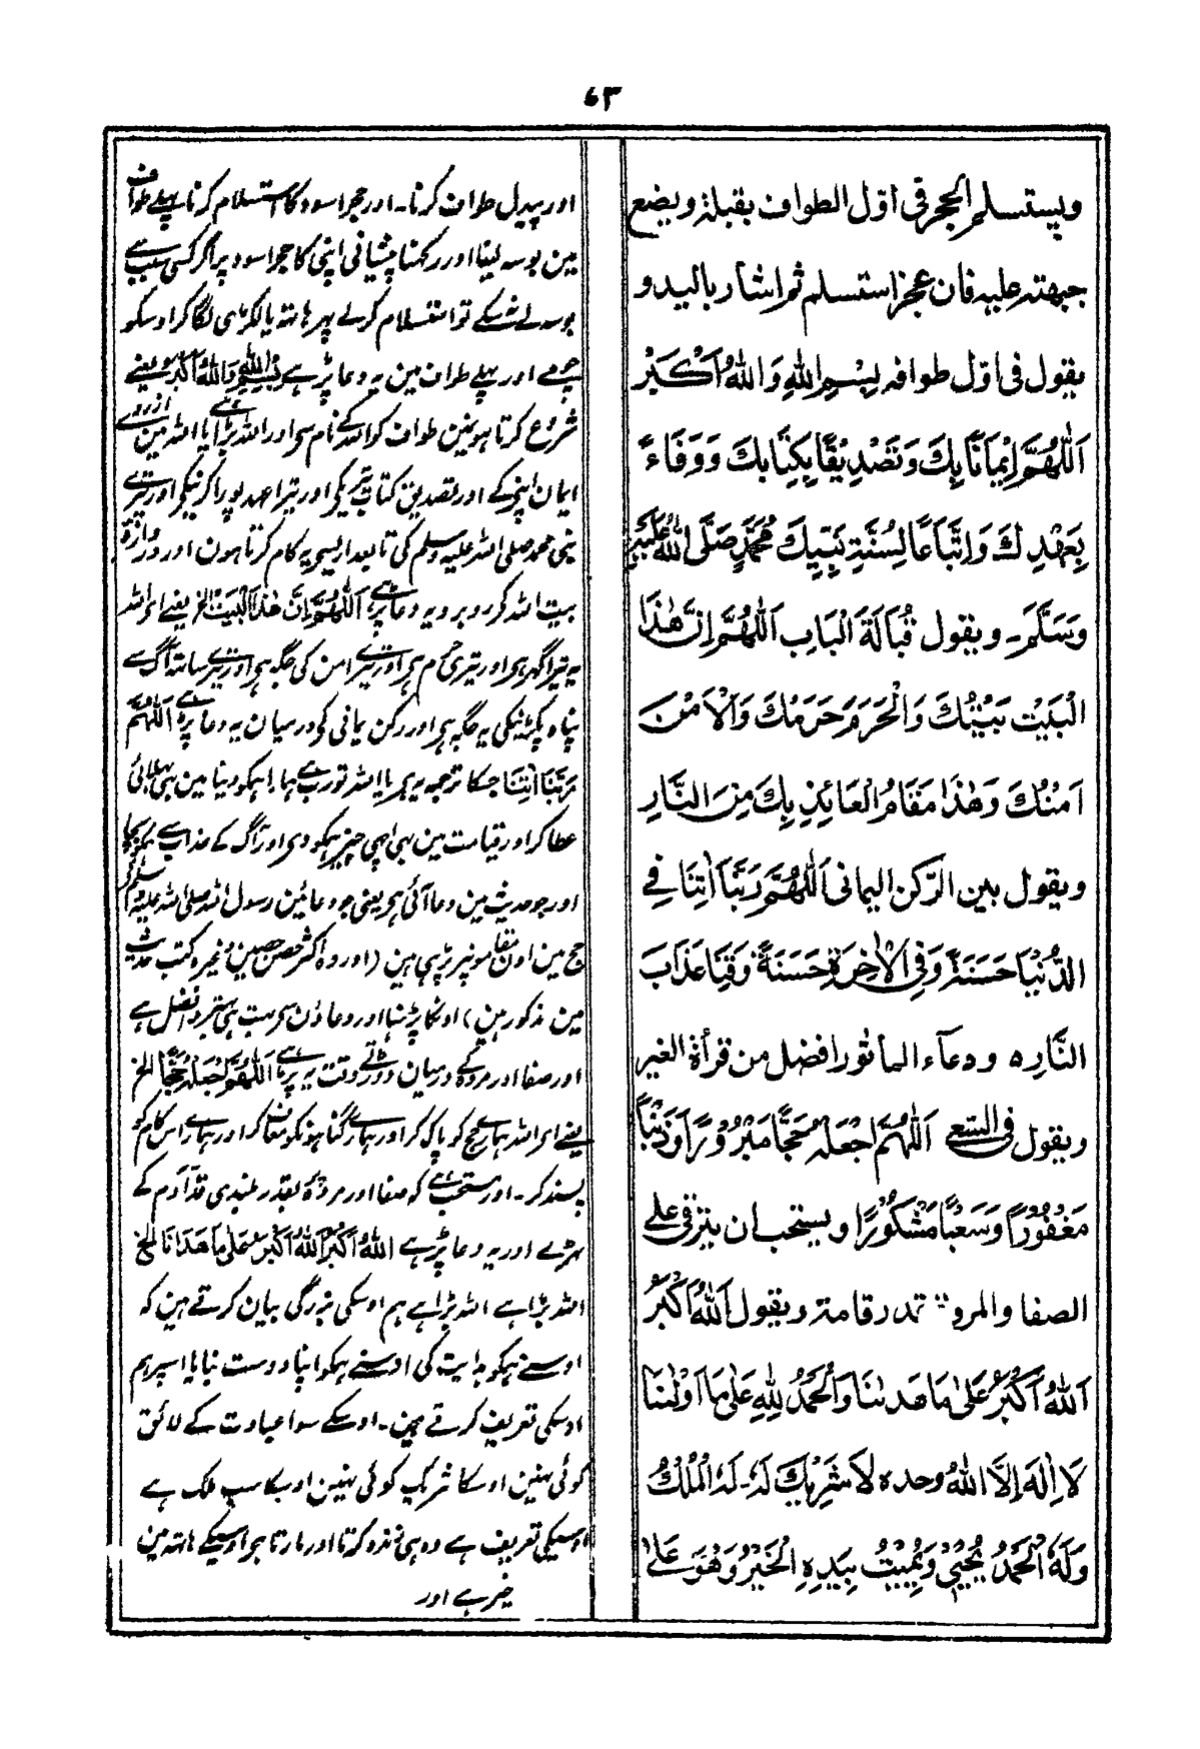 ٦٣
ويستسلم الحجر في اوّل الطواف بقبلة ويضع
جبهته عليه فان عجز استسلم ثم اشار باليد و
يقول فى اوّل طوافه بِسْمِ اللهِ وَاللهُ اَكْبَرْ
اَللّٰهُمَّ اِيْمَانًا بِكَ وَتَصْدِيْقًا بِكِتَابِكَ وَوَفَاءً
بِعَهْدِكَ وَاتِّبَاعًا لِسُنَّةِ نَبِيِّكَ مُحَمَّدٍ صَلَّى اللهُ عَلَيْهِ
وَسَلَّمَ۔ ويقول قُبَالَةَ الْبَابِ اَللّٰهُمَّ اِنَّ هٰذَا
الْبَيْتَ بَيْتُكَ وَالْحَرَمَ حَرَمُكَ وَالْاَمْنَ
اَمْنُكَ وَهٰذَا مَقَامُ الْعَائِذِ بِكَ مِنَ النَّارِ
ويقول بين الرّكن اليمانى اَللّٰهُمَّ رَبَّنَا اٰتِنَا فِے
الدُّنْيَا حَسَنَةً وَفِى الْاٰخِرَةِ حَسَنَةً وَقِنَا عَذَابَ
النَّارِ ه ودعآء المأثور افضل من قرأة الغير
ويقول فى السّعے اَللّٰهُمَّ اجْعَلْهُ حَجًّا مَبْرُوْرًا وَذَنْبًا
مَغْفُوْرًا وَسَعْيًا مَشْكُوْرًا ويستحب ان يترقى على
الصفا والمروة قدر قامة ويقول اَللهُ اَكْبَرُ
اَللهُ اَكْبَرُ عَلٰى مَا هَدٰىنَا وَالْحَمْدُ لِلّٰهِ عَلٰى مَا اَوْلٰىنَا
لَا اِلٰهَ اِلَّا اللهُ وحده لَا شَرِيْكَ لَهٗ۔ لَهُ الْمُلْكُ
وَلَهُ الْحَمْدُ يُحْيِىْ وَيُمِيْتُ بِيَدِهِ الْخَيْرُ وَهُوَ عَلٰى
اور پیدل طواف کرنا۔ اور حجر اسود کا استسلام کرنا پہلے طواف
مین بوسہ لینا اور رکھنا پیشانی اپنی کا حجر اسود پر اگر کسی سبب سے
بوسہ لے نہ سکے تو استسلام کرلے پھر ہاتھ یا لکڑی لگا کر اوسکو
چومے اور پہلے طواف مین یہ دعا پڑہے بِسْمِ اللهِ وَاللهُ اَكْبَرُ یعنے
شروع کرتا ہون مین طواف کو اللہ کے نام سے اور اللہ بڑا ہے یا اللہ مین ازروے
ایمان اپنے کے اور تصدیق کتاب تیری کے اور تیرا عہد پورا کرنیکے اور تیرے
نبی محمد صلی اللہ علیہ وسلم کی تابعداری سے یہ کام کرتا ہون اور دروازۂ
بیت اللہ کے روبرو یہ دعا پڑہے اَللّٰهُمَّ اِنَّ هٰذَا الْبَيْتَ الخ یعنے اے اللہ
یہ تیرا گھر ہے اور تیری حرم ہے اور تیرے امن کی جگہ ہے اور تیرے ساتھ آگ سے
پناہ پکڑنیکی یہ جگہ ہے اور رکن یمانی کے درمیان یہ دعا پڑہے اَللّٰهُمَّ
رَبَّنَا اٰتِنَا جسکا ترجمہ یہ ہے یا اللہ تو رب ہے ہمارا ہمکو دنیا مین بہی بہلائی
عطا کر اور قیامت مین بہی اچہی چیز ہمکو دی اور آگ کے عذاب سے ہمکو بچا
اور جو حدیث مین دعا آئی ہے یعنی جو دعائین رسول اللہ صلی اللہ علیہ وسلم نے
حج مین اون مقامونپر پڑہی ہین (اور وہ اکثر حصن حصین وغیرہ کتب حدیث
مین مذکور ہین) اونکا پڑہنا اور دعاؤن سے بہت ہی بہتر و افضل ہے
اور صفا اور مروہ کے درمیان دوڑتے وقت یہ پڑہے اَللّٰهُمَّ اجْعَلْهُ حَجًّا الخ
یعنے اے اللہ ہمارے حج کو پاک کر اور ہمارے گناہونکو معاف کر اور ہمارے اس کام کو
پسند کر۔ اور مستحب ہے کہ صفا اور مروہ پر بقدر بلندی قد آدم کے
چڑہے اور یہ دعا پڑہے اَللهُ اَكْبَرُ اَللهُ اَكْبَرُ عَلٰى مَا هَدَانَا الخ
اللہ بڑا ہے اللہ بڑا ہے ہم اوسکی بزرگی بیان کرتے ہین کہ
اوسنے ہمکو ہدایت کی اوسنے ہمکو اپنا دوست بنایا اسپر ہم
اوسکی تعریف کرتے ہین۔ اوسکے سوا عبادت کے لائق
کوئی نہین اوسکا شریک کوئی نہین اوسکا سب ملک ہے
اوسیکی تعریف ہے وہ ہی زندہ کرتا اور مارتا ہے اوسیکے ہاتھ مین
خیر ہے اور